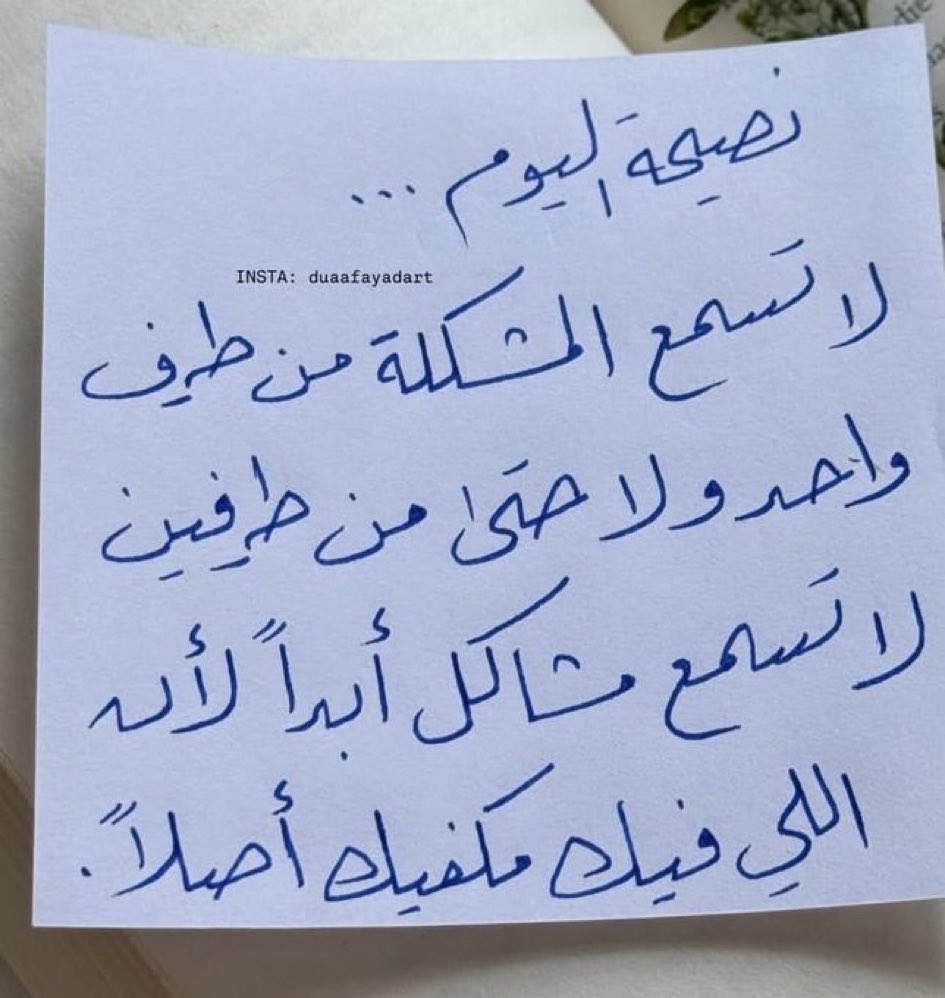 نصيحة اليوم ...
INSTA: duaafayadart
لا تسمع المشكلة من طرف
واحد ولا حتى من طرفين
لا تسمع مشاكل أبداً لأن
اللي فيك مكفيك أصلاً .